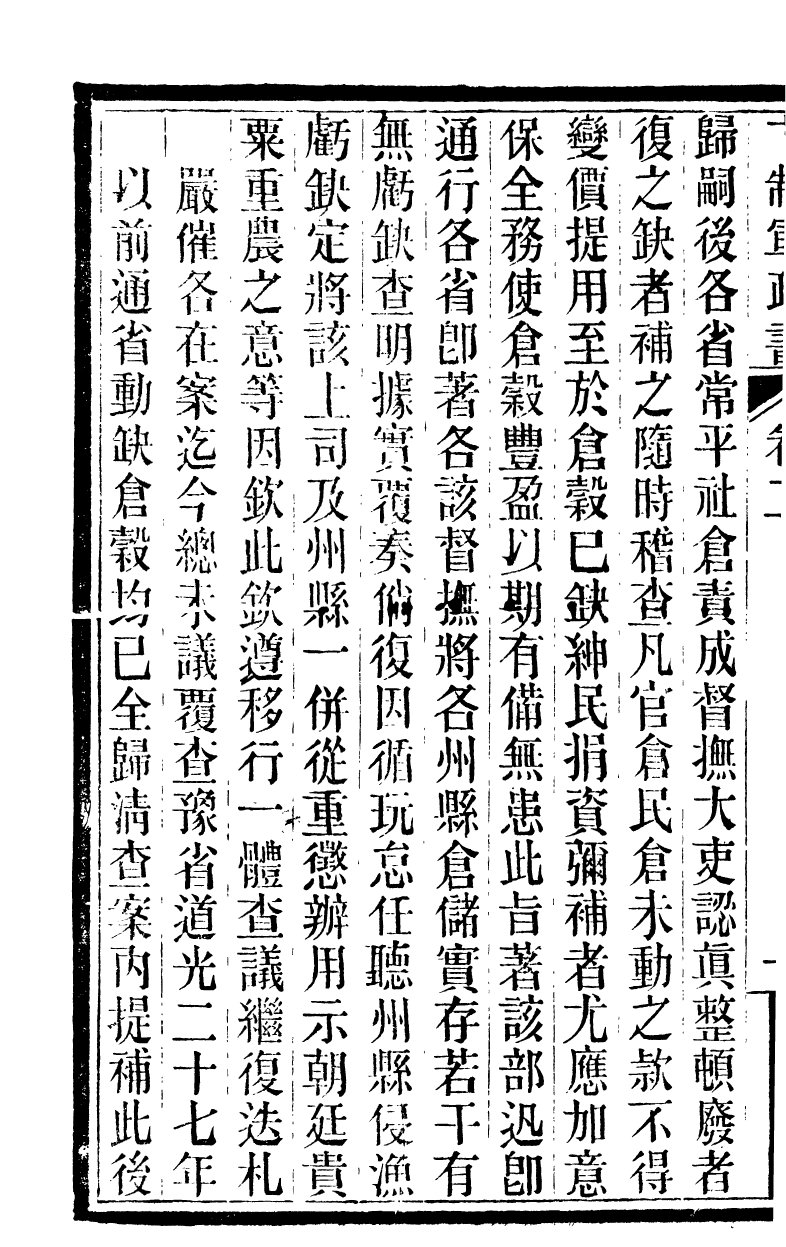 歸嗣後各省常平社倉責成督撫大吏認眞整頓廢者
復之缺者補之隨時稽查凡官倉民倉未動之款不得
變價提用至於倉穀已缺紳民捐資彌補者尤應加意
保全務使倉穀豐盈以期有備無患此旨著該部迅卽
通行各省卽著各該督撫將各州縣倉儲實存若干有
無虧缺查明據實覆奏倘復因循玩怠任聽州縣侵漁
虧缺定將該上司及州縣一併從重懲辦用示朝廷貴
粟重農之意等因欽此欽遵移行一體查議繼復迭札
嚴催各在案迄今總未議覆查豫省道光二十七年
以前通省動缺倉穀均已全歸淸查案內提補此後